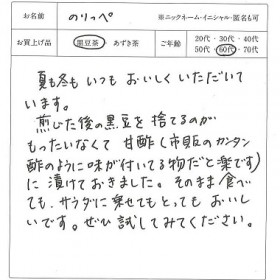 お名前 のりっぺ ※ニックネーム・イニシャル・匿名も可
お買上げ品 黒豆茶・あずき茶 ご年齢 20代・30代・40代
50代・60代・70代
夏も冬もいつもおいしくいただいて
います。
煎じた後の黒豆を捨てるのが
もったいなくて甘酢(市販のカンタン
酢のように味が付いてる物だと楽です)
に漬けておきました。そのまま食べ
ても、サラダに乗せてもとってもおいし
いです。ぜひ試してみてください。